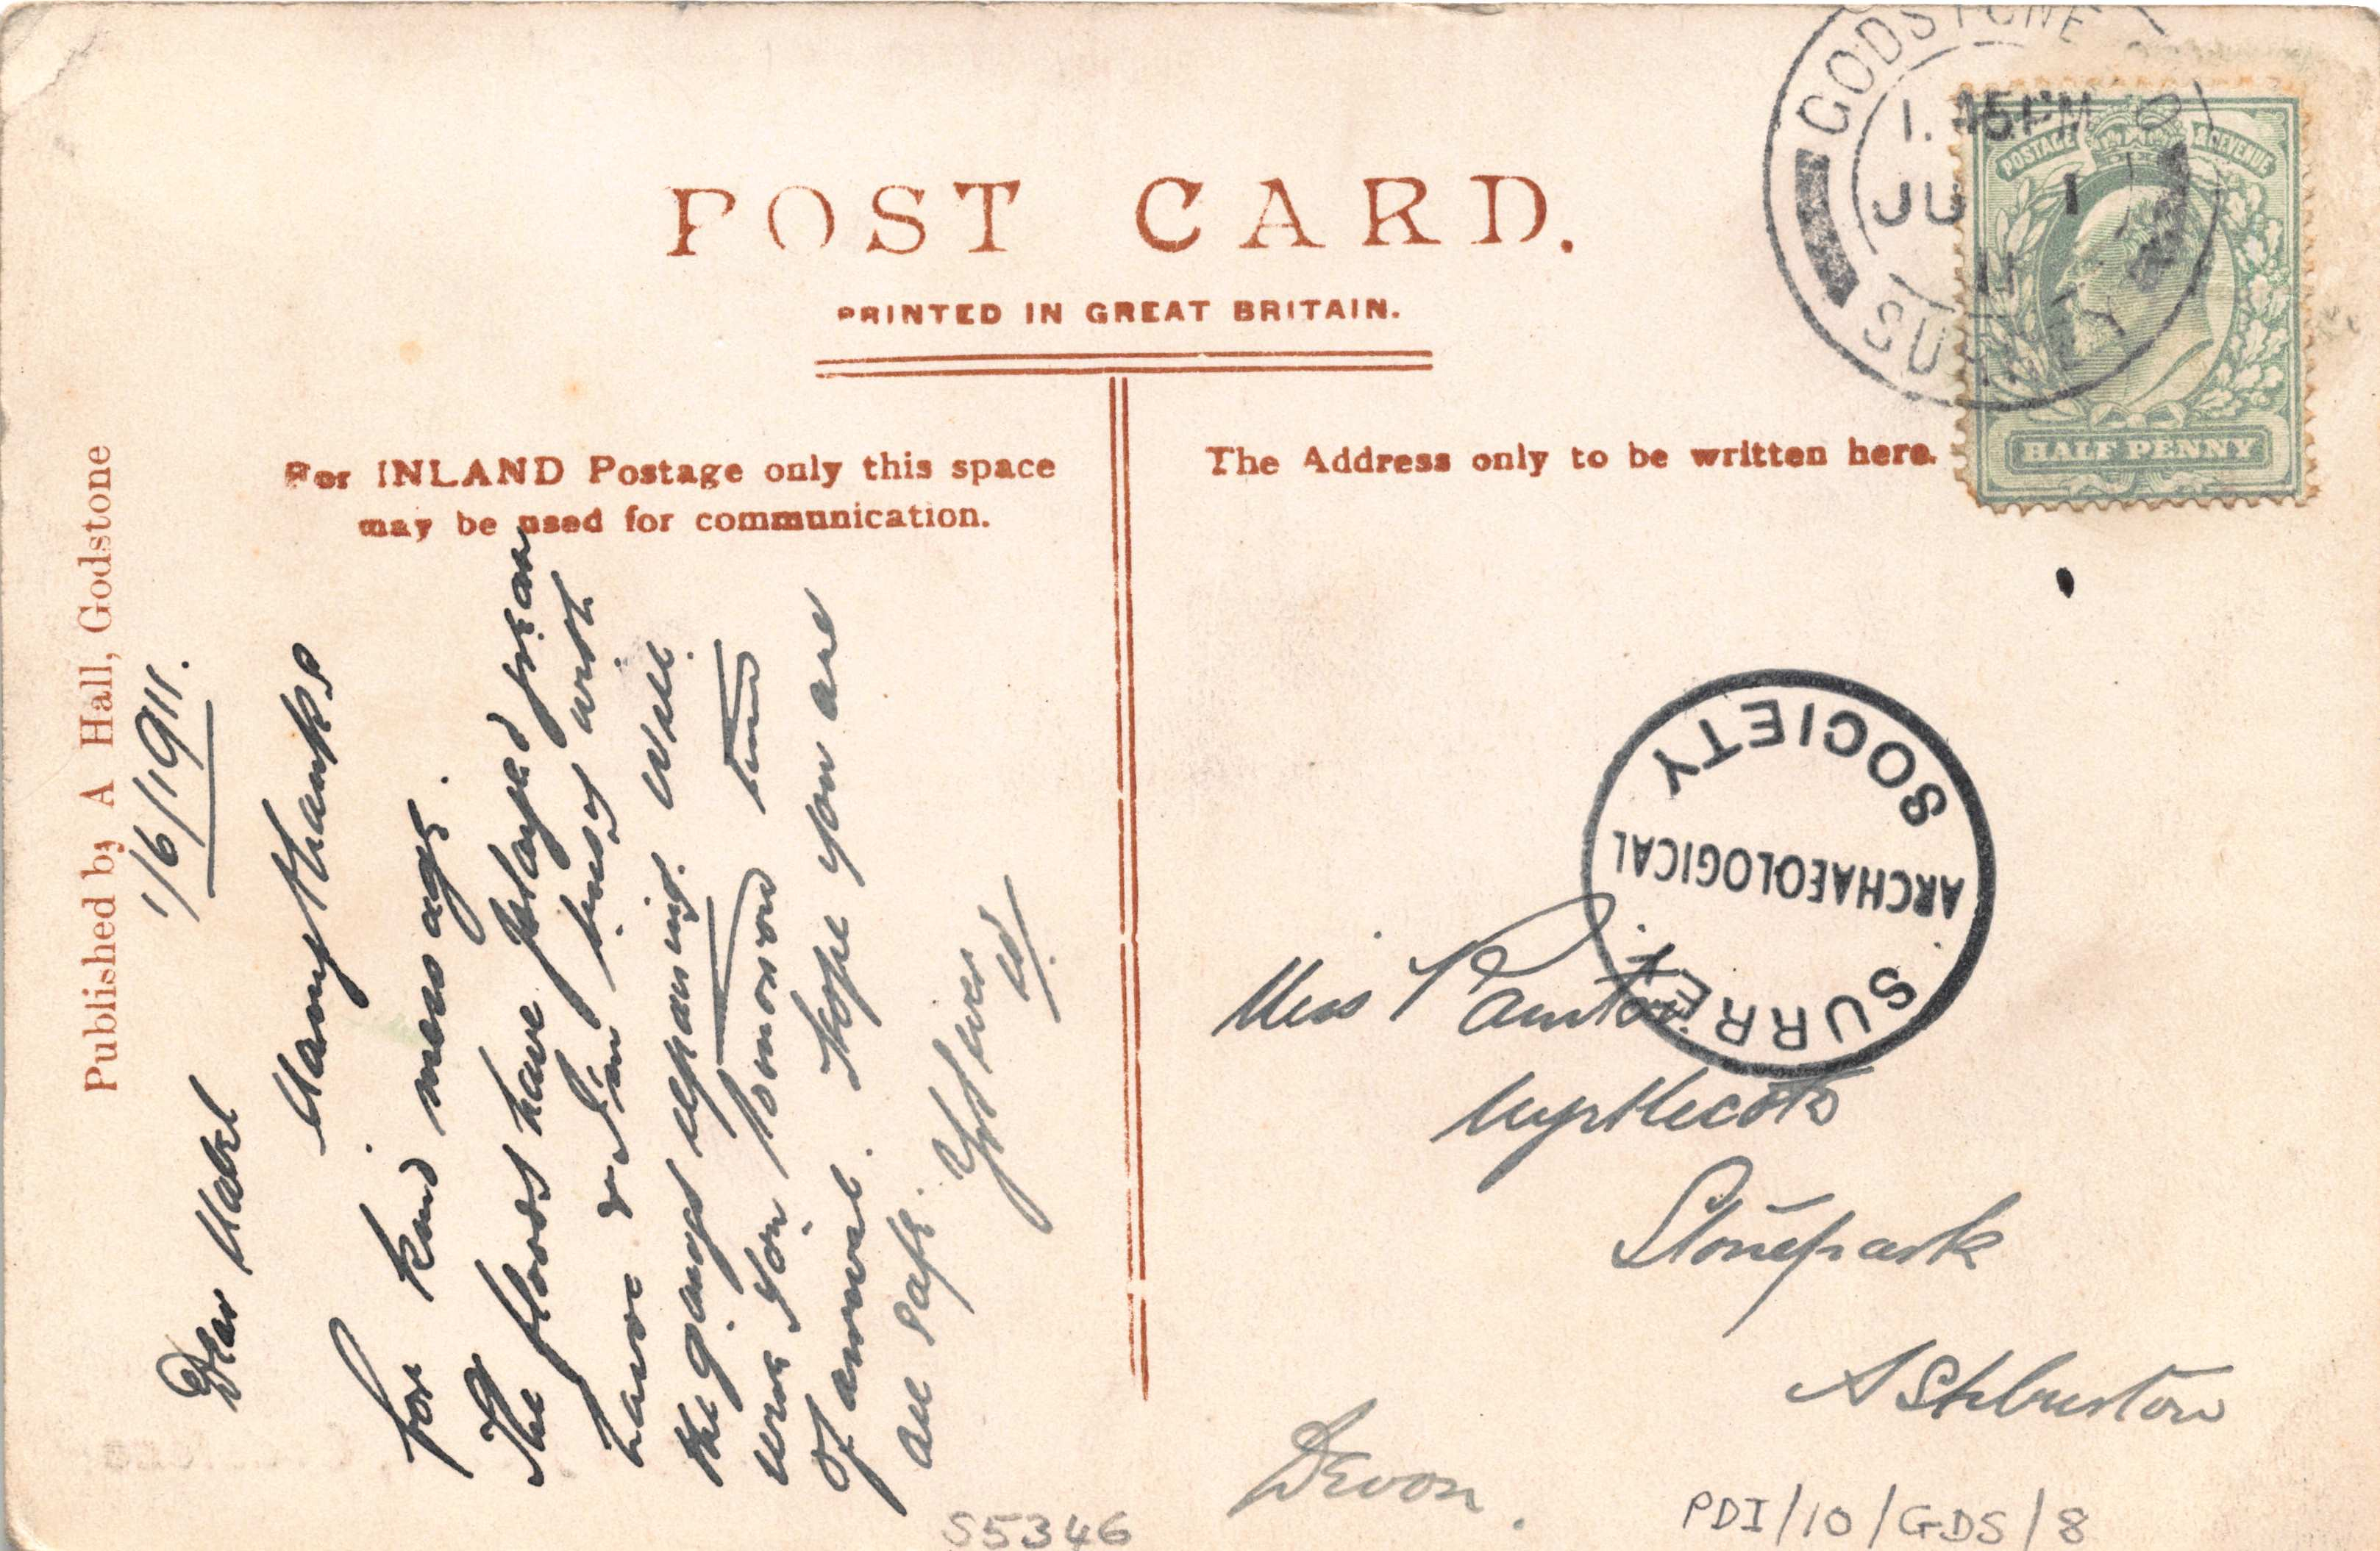 POST CARD.
PRINTED IN GREAT BRITAIN.
For INLAND Postage only this space
may be used for communication.
The Address only to be written here.
Published by A Hall, Godstone
GODSTONE
1.45PM
JU 1
11
SURREY
POSTAGE & REVENUE
HALF PENNY
1/6/1911.
Dear Mabel
Many thanks
for kind message.
The floods have played
havoc & I'm busy with
the gangs repairing. Will
wire you tomorrow time
of arrival. Hope you are
all safe.
SURREY
ARCHAEOLOGICAL
SOCIETY
Miss
Myrtlecot
Stonepark
Ashburton
Devon.
S5346
PDI/10/GDS/8